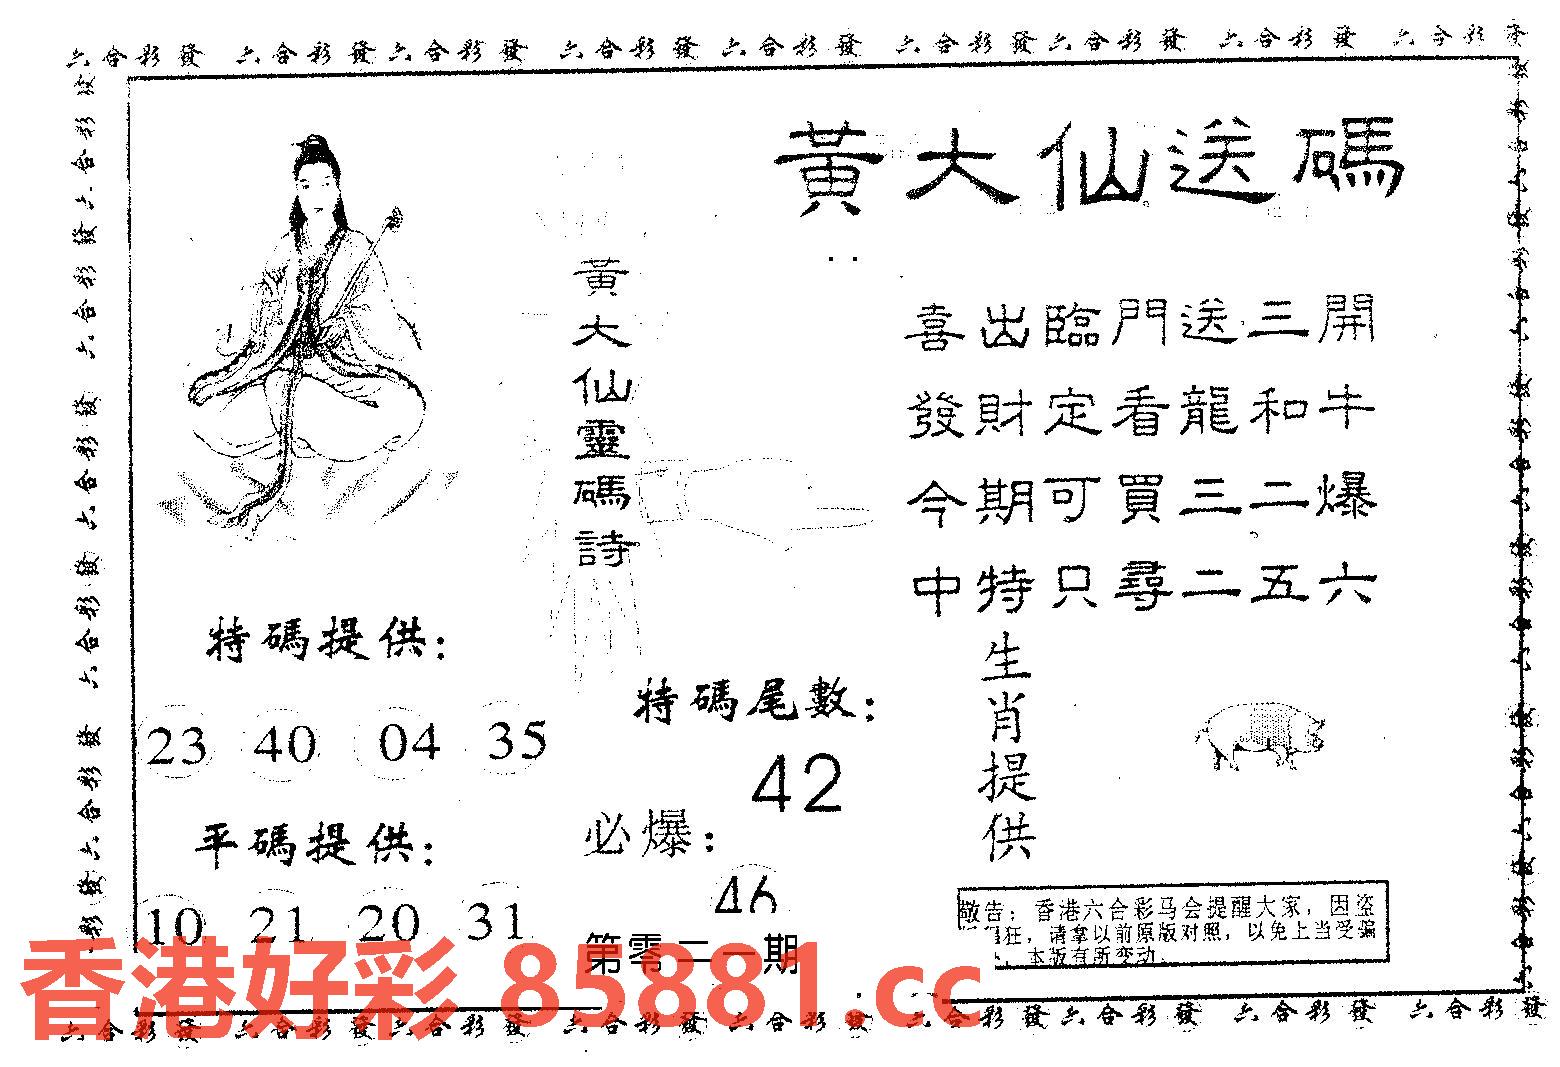 六合彩發 六合彩發六合彩發 六合彩發 六合彩發 六合彩發六合彩發 六合彩發 六合彩發
黃大仙送碼
黃大仙靈碼詩
喜出臨門送三開
發財定看龍和牛
今期可買三二爆
中特只尋二五六
特碼提供：
23 40 04 35
平碼提供：
10 21 20 31
特碼尾數：
42
必爆：
46
第零二一期
生肖提供
敬告：香港六合彩马会提醒大家，因盗
狂，请拿以前原版对照，以免上当受骗
，本版有所变动
香港好彩 85881.cc
六合彩發 六合彩發六合彩發 六合彩發 六合彩發 六合彩發六合彩發 六合彩發 六合彩發